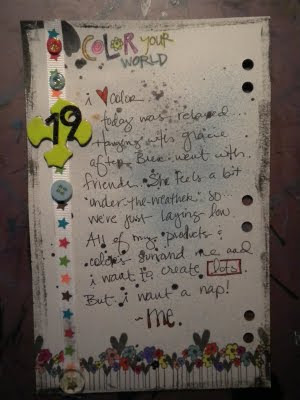 COLOR YOUR
WORLD
19
i ♥ color
today was relaxed...
Hanging with gracie
after Bree went with
friends. She feels a bit
under-the-weather so
we're just laying low.
All of my products &
colors surround me and
i want to create Dots.
But i want a nap!
~me.